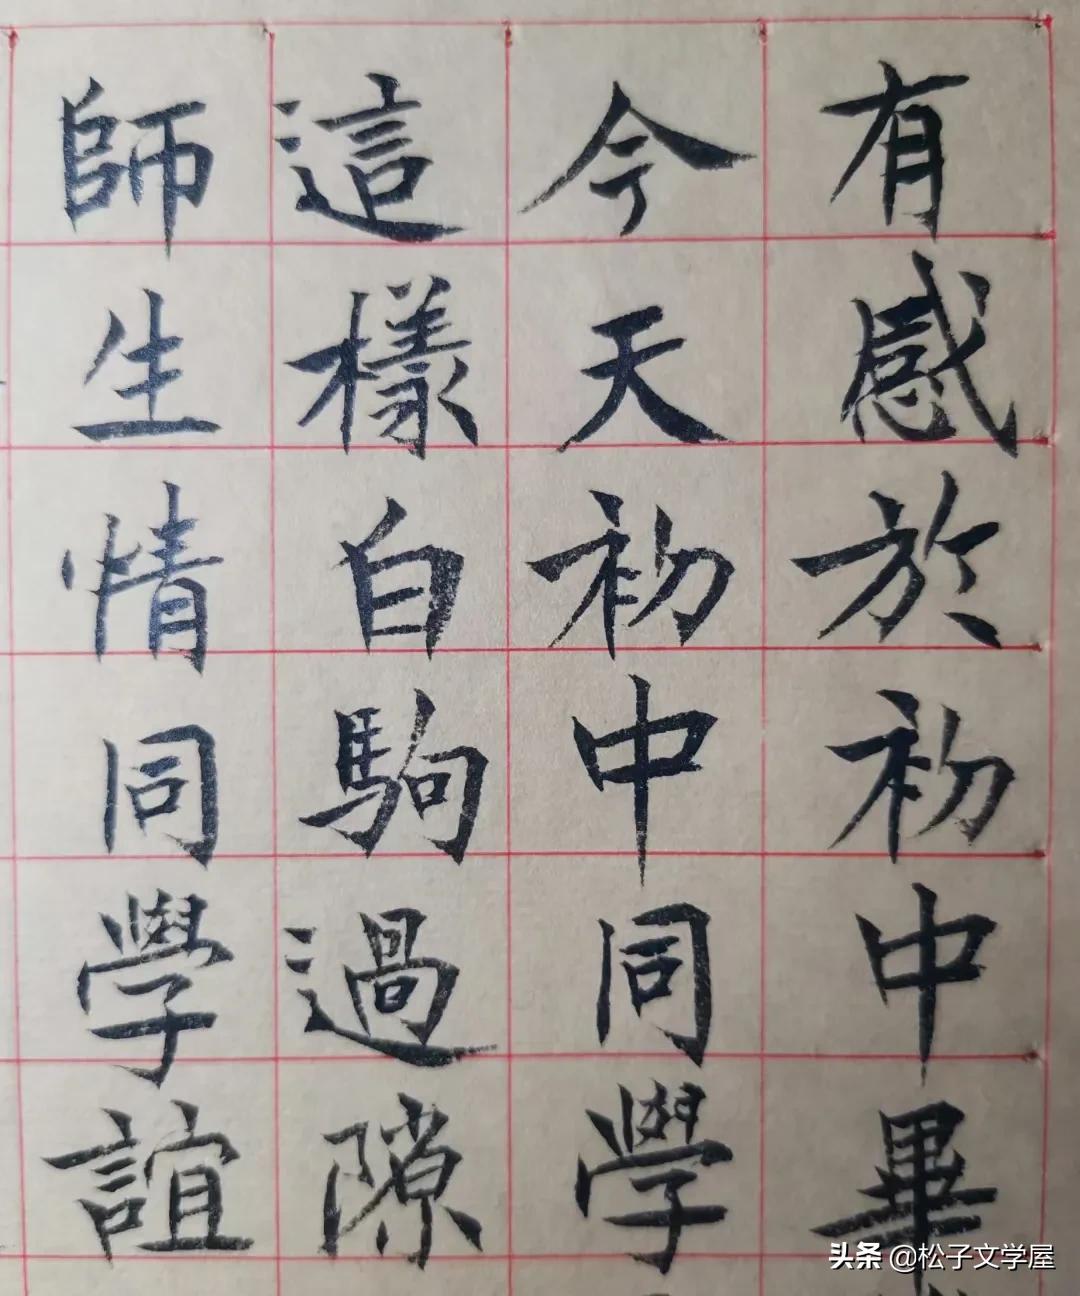 有感於初中畢
今天初中同學
這樣白駒過隙
師生情同學誼
头条 @松子文学屋